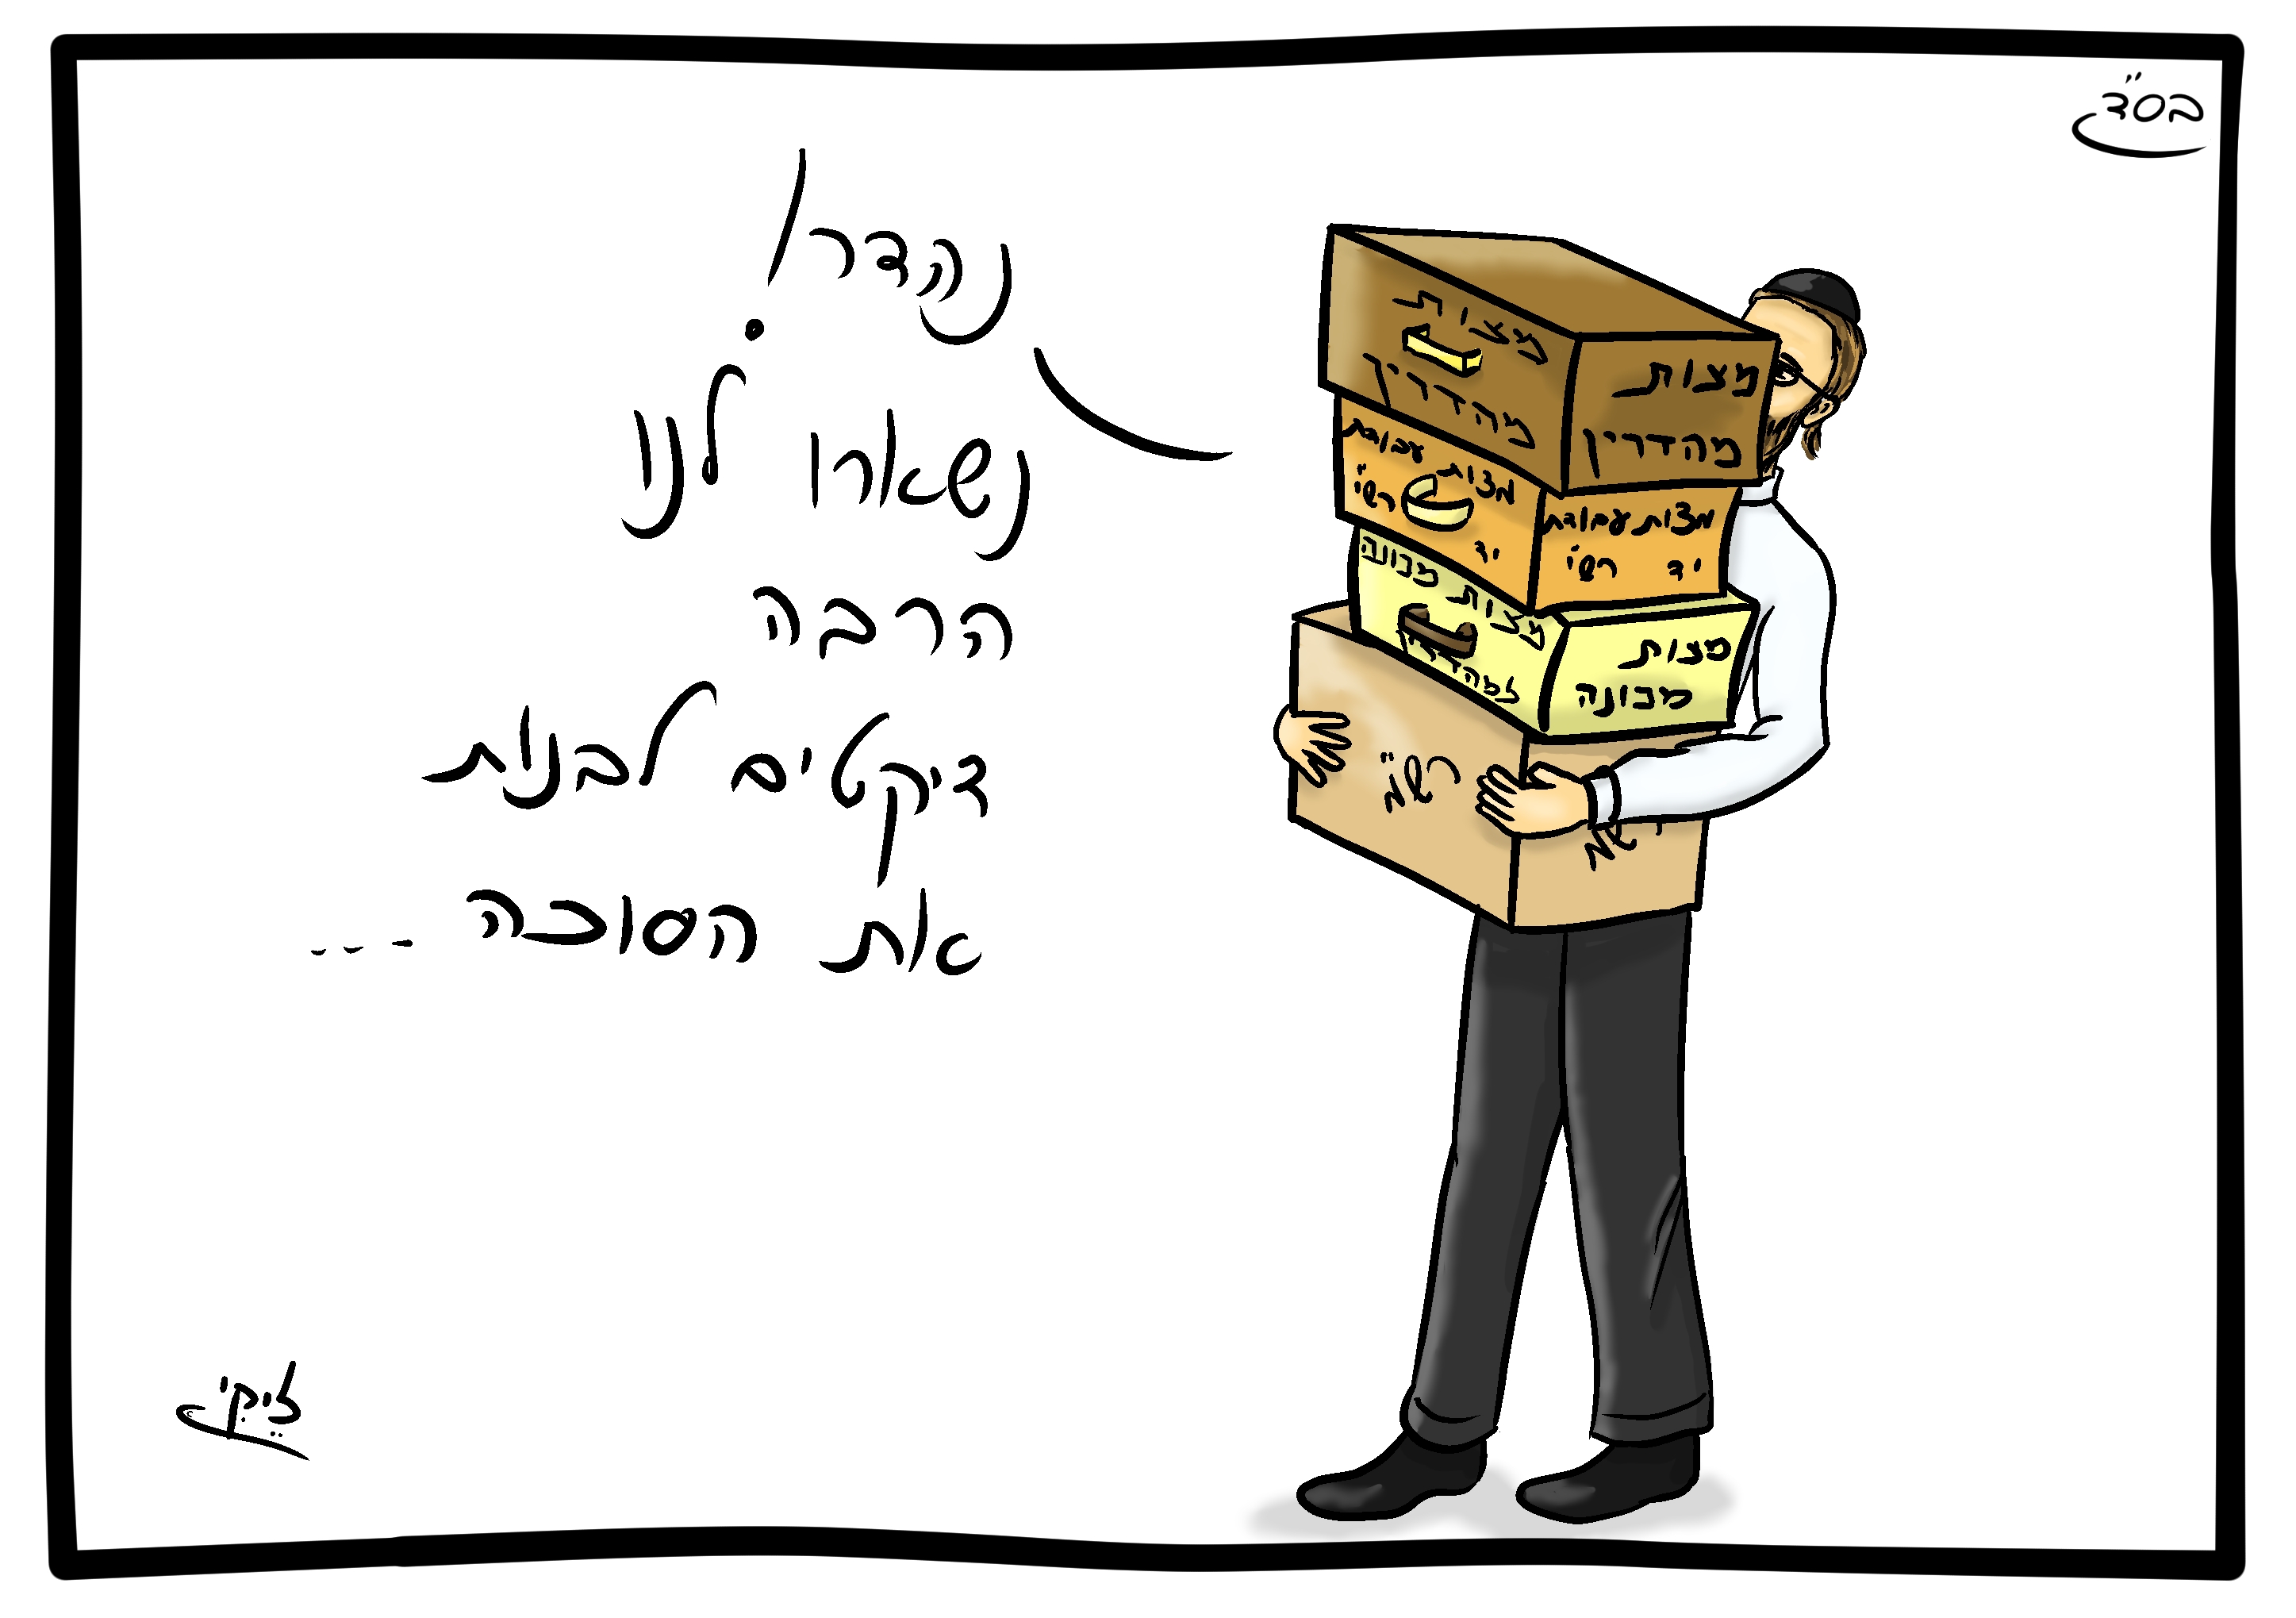 בס"ד
נהדר!
נשארו לנו
הרבה
דיקטים לבנות
את הסוכה...
מצות
מהדרין
מצות
מהדרין
מצות עבודת
יד רש"י
מצות עבודת
יד רש"י
מצות מכונה
למהדרין
מצות
מכונה
רש"מ
לייקי